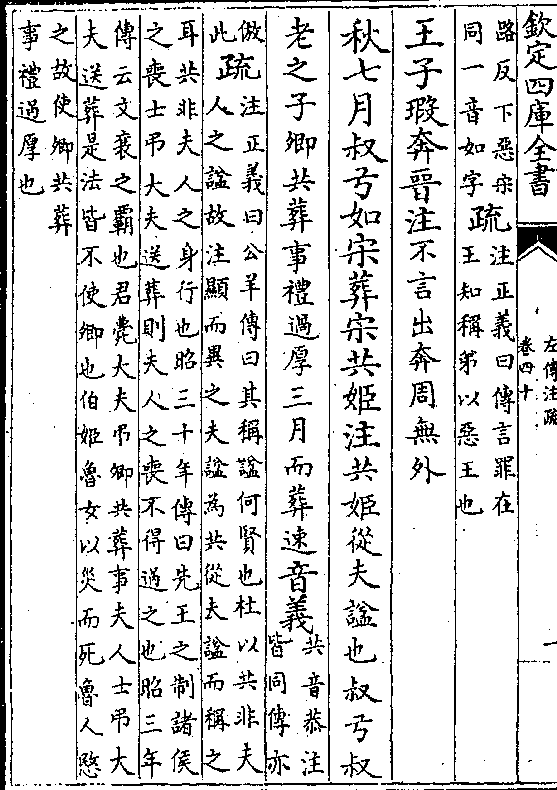 欽定四庫全書
左傳注疏
卷四十
一
路反下惡宋
同一音如字
疏
注正義曰傳言罪在
王知稱弟以惡王也
王子瑕奔晉注不言出奔周無外
秋七月叔弓如宋葬宋共姬注共姬從夫諡也叔弓叔
老之子卿共葬事禮過厚三月而葬速音義
共音恭注
皆同傳亦
倣
此
疏
注正義曰公羊傳曰其稱諡何賢也杜以共非夫
人之諡故注顯而異之夫諡為共從夫諡而稱之
耳共非夫人之身行也昭三十年傳曰先王之制諸侯
之喪士弔大夫送葬則夫人之喪不得過之也昭三年
傳云文襄之霸也君薨大夫弔卿共葬事夫人士弔大
夫送葬是法皆不使卿也伯姬魯女以災而死魯人愍
之故使卿共葬
事禮過厚也